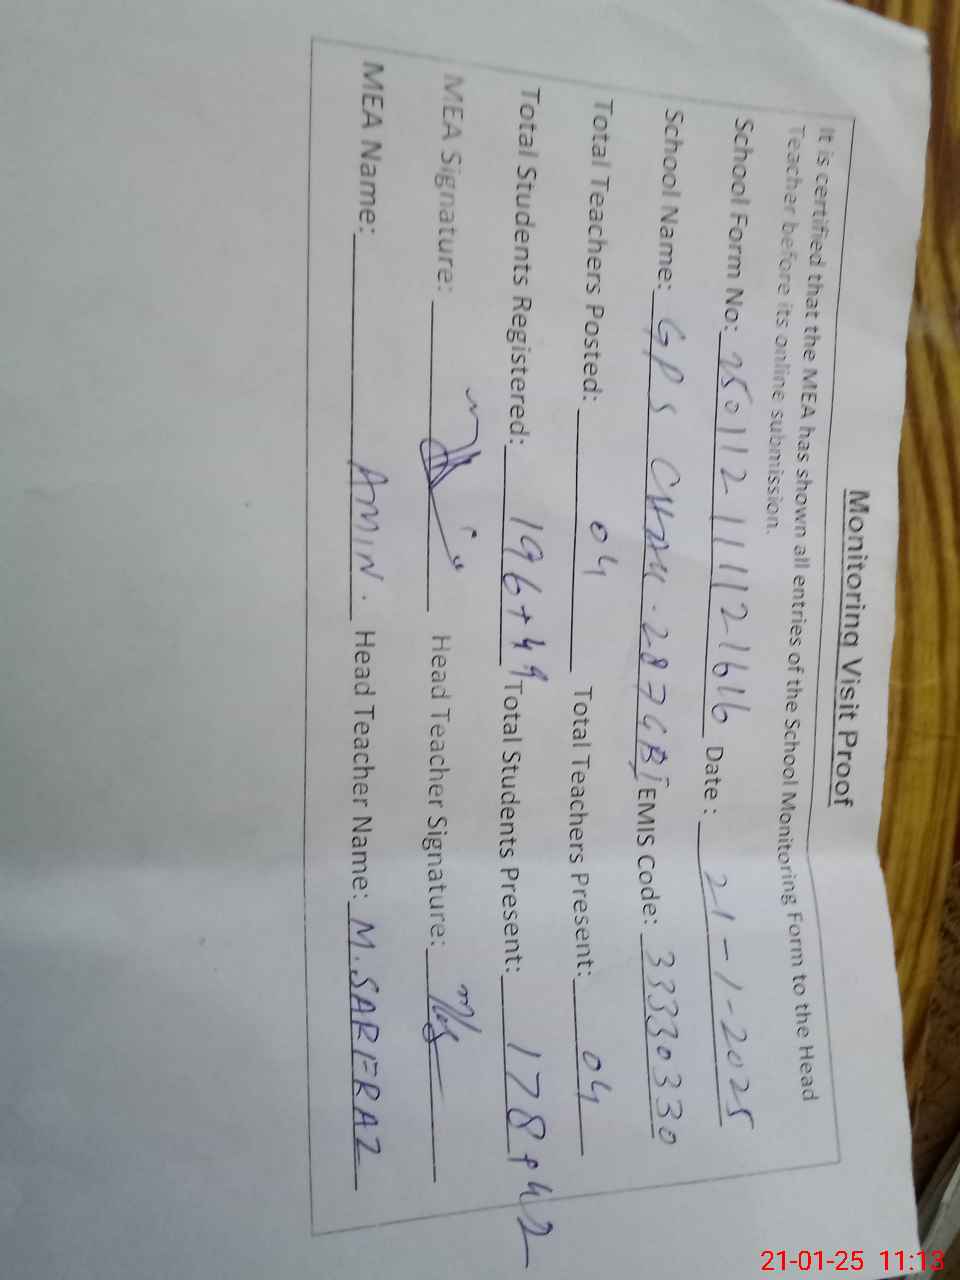 Monitoring Visit Proof
It is certified that the MEA has shown all entries of the School Monitoring Form to the Head
Teacher before its online submission.
School Form No: 250112111121616 Date : 21-1-2025
School Name: GPS CHAK . 287GB EMIS Code: 33330330
Total Teachers Posted: 04 Total Teachers Present: 04
Total Students Registered: 196+49 Total Students Present: 178+42
MEA Signature: Head Teacher Signature:
MEA Name: AMIN. Head Teacher Name: M.SARFRAZ
21-01-25 11:13